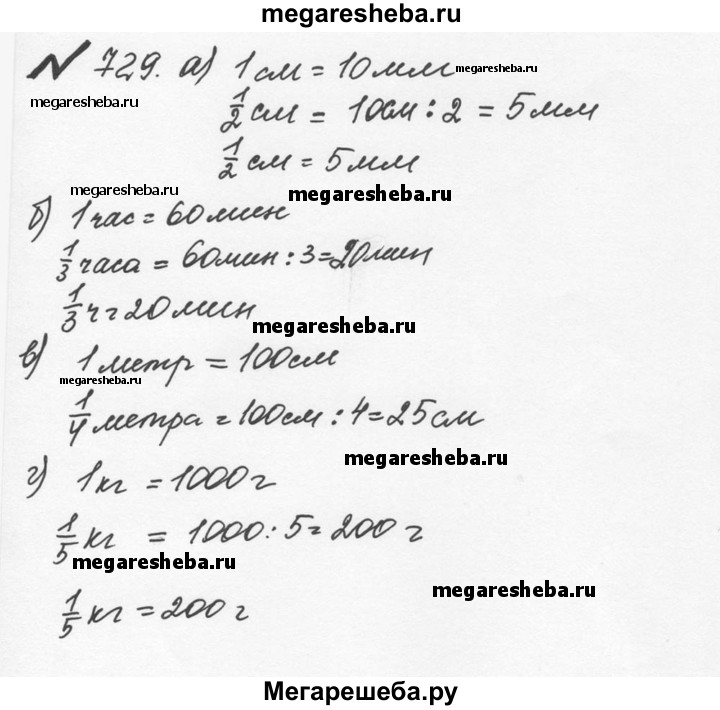 megaresheba.ru
№ 729. а) 1 см = 10 мм megaresheba.ru
megaresheba.ru
1/2 см = 10см : 2 = 5 мм
1/2 см = 5 мм
megaresheba.ru
megaresheba.ru
б) 1 час = 60 мин
1/3 часа = 60 мин : 3 = 20 мин
1/3 ч = 20 мин
megaresheba.ru
в) 1 метр = 100 см
megaresheba.ru
1/4 метра = 100 см : 4 = 25 см
megaresheba.ru
г) 1 кг = 1000 г
1/5 кг = 1000 : 5 = 200 г
megaresheba.ru
megaresheba.ru
1/5 кг = 200 г
Мегарешеба.ру